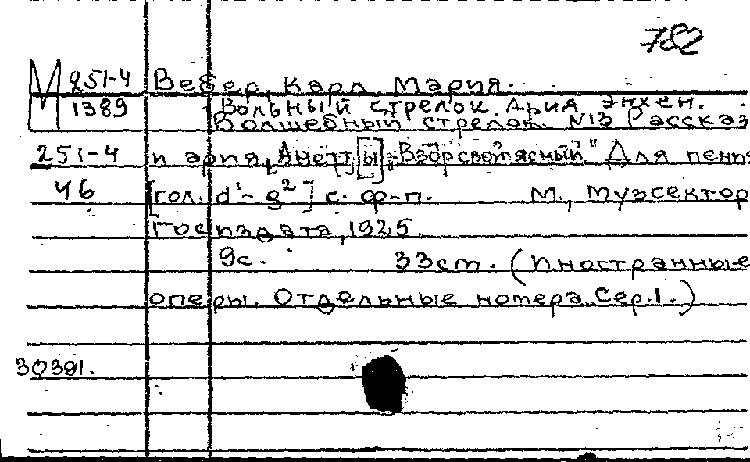 782
М 251-4 Вебер, Карл Мария.
1389 Вольный стрелок Ария Энхен.
Волшебный стрелок. N13 Рассказ
251-4 и ария Анетт[ы] „Взор свотясный" Для пения
46 [гол. d¹-g²] с ф-п. М., Музсектор
Госиздата, 1925
9с. 33cm. (Иностранные
оперы. Отдельные номера. Сер.1.)
30391.